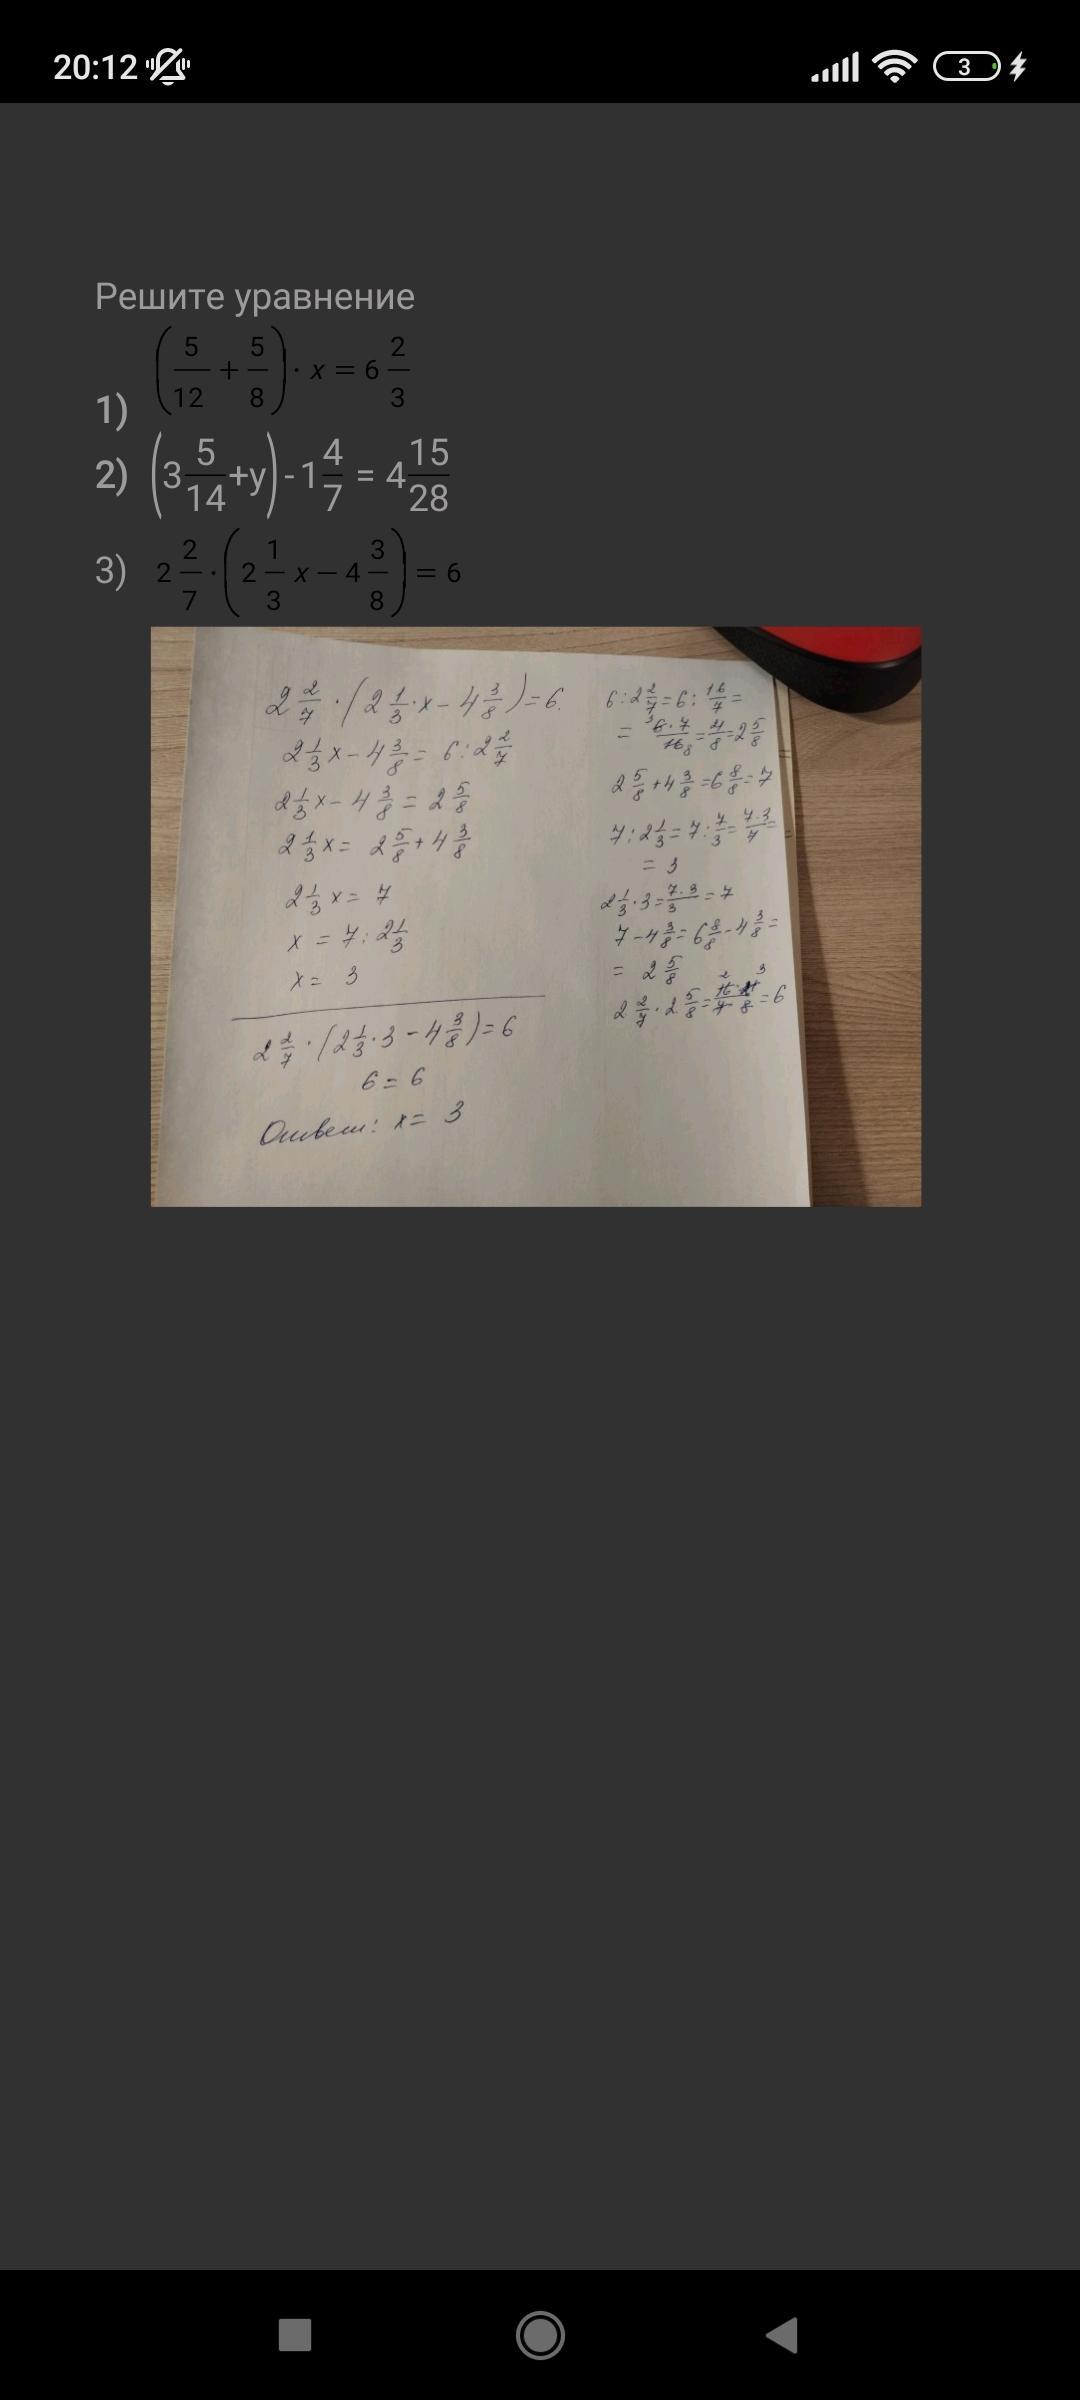 20:12
3
Решите уравнение
1) (5/12 + 5/8) · x = 6 2/3
2) (3 5/14 +y) - 1 4/7 = 4 15/28
3) 2 2/7 · (2 1/3 x − 4 3/8) = 6
2 2/7 · (2 1/3 · x − 4 3/8) = 6.
2 1/3 x − 4 3/8 = 6 : 2 2/7
2 1/3 x − 4 3/8 = 2 5/8
2 1/3 x = 2 5/8 + 4 3/8
2 1/3 x = 7
x = 7 : 2 1/3
x = 3
2 2/7 · (2 1/3 · 3 − 4 3/8) = 6
6 = 6
Ответ: x = 3
6 : 2 2/7 = 6 : 16/7 =
= 3 6·7/16 8 = 21/8 = 2 5/8
2 5/8 + 4 3/8 = 6 8/8 = 7
7 : 2 1/3 = 7 : 7/3 = 7·3/7 =
= 3
2 1/3 · 3 = 7·3/3 = 7
7 − 4 3/8 = 6 8/8 − 4 3/8 =
= 2 5/8
2 2/7 · 2 5/8 = 2 16·21 3/7 8 = 6